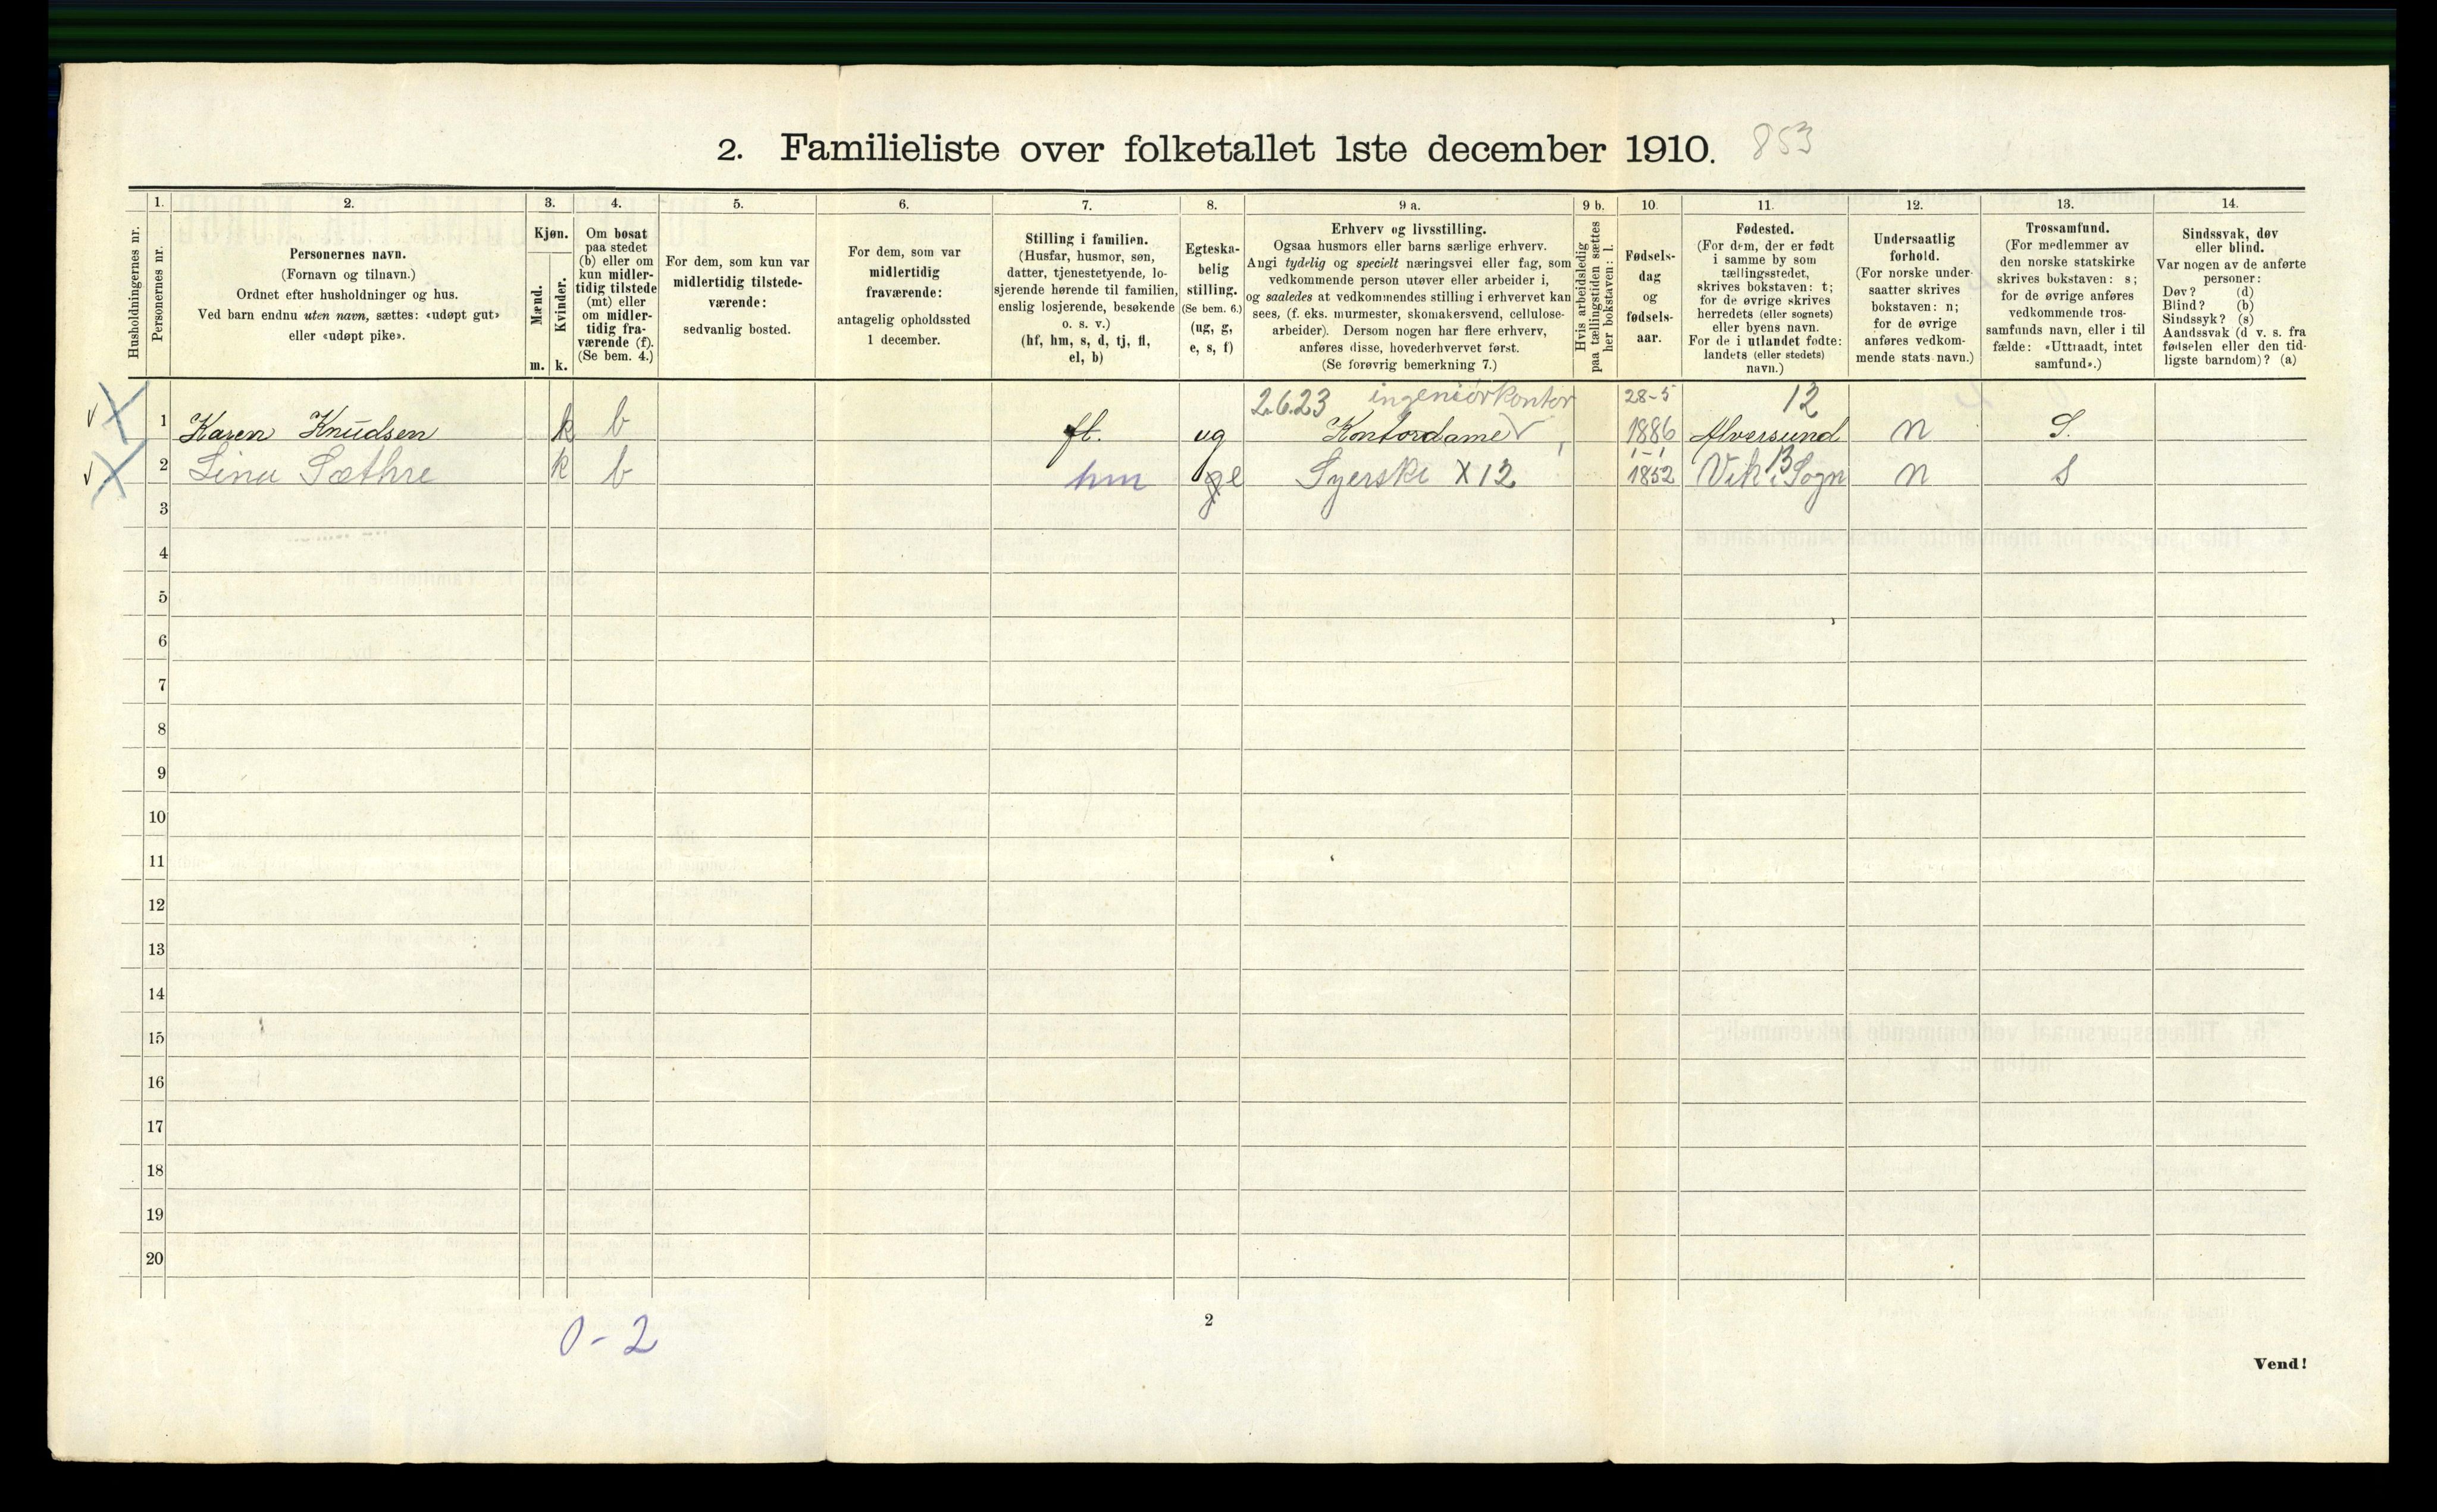 2. Familieliste over folketallet 1ste december 1910. 853
Husholdningernes nr.
1.
Personernes nr.
2.
Personernes navn.
(Fornavn og tilnavn.)
Ordnet efter husholdninger og hus.
Ved barn endnu uten navn, sættes: «udøpt gut»
eller «udøpt pike».
3.
Kjøn.
Mænd.
m.
Kvinder.
k.
4.
Om bosat
paa stedet
(b) eller om
kun midler-
tidig tilstede
(mt) eller
om midler-
tidig fra-
værende (f).
(Se bem. 4.)
5.
For dem, som kun var
midlertidig tilstede-
værende:
sedvanlig bosted.
6.
For dem, som var
midlertidig
fraværende:
antagelig opholdssted
1 december.
7.
Stilling i familien.
(Husfar, husmor, søn,
datter, tjenestetyende, lo-
sjerende hørende til familien,
enslig losjerende, besøkende
o. s. v.)
(hf, hm, s, d, tj, fl,
el, b)
8.
Egteska-
belig
stilling.
(Se bem. 6.)
(ug, g,
e, s, f)
9 a.
Erhverv og livsstilling.
Ogsaa husmors eller barns særlige erhverv.
Angi tydelig og specielt næringsvei eller fag, som
vedkommende person utøver eller arbeider i,
og saaledes at vedkommendes stilling i erhvervet kan
sees, (f. eks. murmester, skomakersvend, cellulose-
arbeider). Dersom nogen har flere erhverv,
anføres disse, hovederhvervet først.
(Se forøvrig bemerkning 7.)
9 b.
Hvis arbeidsledig
paa tællingstiden sættes
her bokstaven: l.
10.
Fødsels-
dag
og
fødsels-
aar.
11.
Fødested.
(For dem, der er født
i samme by som
tællingsstedet,
skrives bokstaven: t;
for de øvrige skrives
herredets (eller sognets)
eller byens navn.
For de i utlandet fødte:
landets (eller stedets)
navn.)
12.
Undersaatlig
forhold.
(For norske under-
saatter skrives
bokstaven: n;
for de øvrige
anføres vedkom-
mende stats navn.)
13.
Trossamfund.
(For medlemmer av
den norske statskirke
skrives bokstaven: s;
for de øvrige anføres
vedkommende tros-
samfunds navn, eller i til-
fælde: «Uttraadt, intet
samfund».)
14.
Sindssvak, døv
eller blind.
Var nogen av de anførte
personer:
Døv? (d)
Blind? (b)
Sindssyk? (s)
Aandssvak (d. v. s. fra
fødselen eller den tid-
ligste barndom)? (a)
2.6.23 ingeniørkontor 28-5 12
1 Karen Knudsen k b fl. ug Kontordame 1886 Alversund n S.
1-1 13
2 Lina Sæthre k b hm g e Syerske X 12 1852 Vik i Sogn n s
3
4
5
6
7
8
9
10
11
12
13
14
15
16
17
18
19
20
0-2
2
Vend!